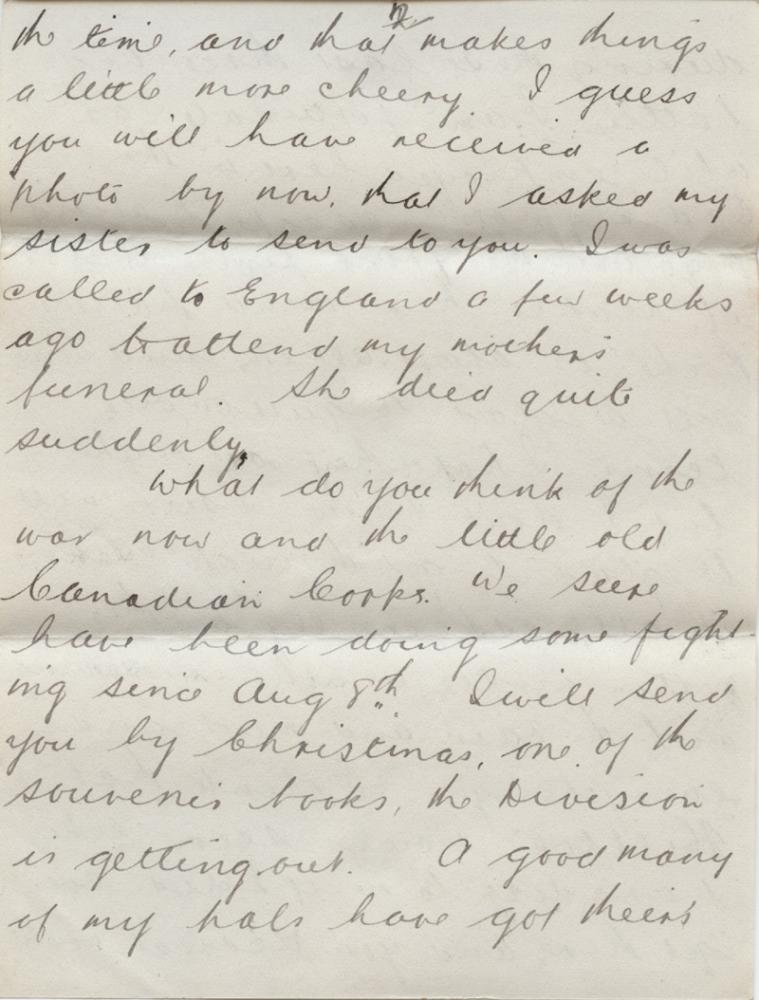 the time, and that makes things
a little more cheery. I guess
you will have received a
photo by now, that I asked my
sister to send to you. I was
called to England a few weeks
ago to attend my mother's
funeral. She died quite
suddenly.
What do you think of the
war now and the little old
Canadian Corps. We sure
have been doing some fight-
ing since Aug 8th. I will send
you by Christmas, one of the
souvenir books, the Division
is getting out. A good many
of my pals have got theirs